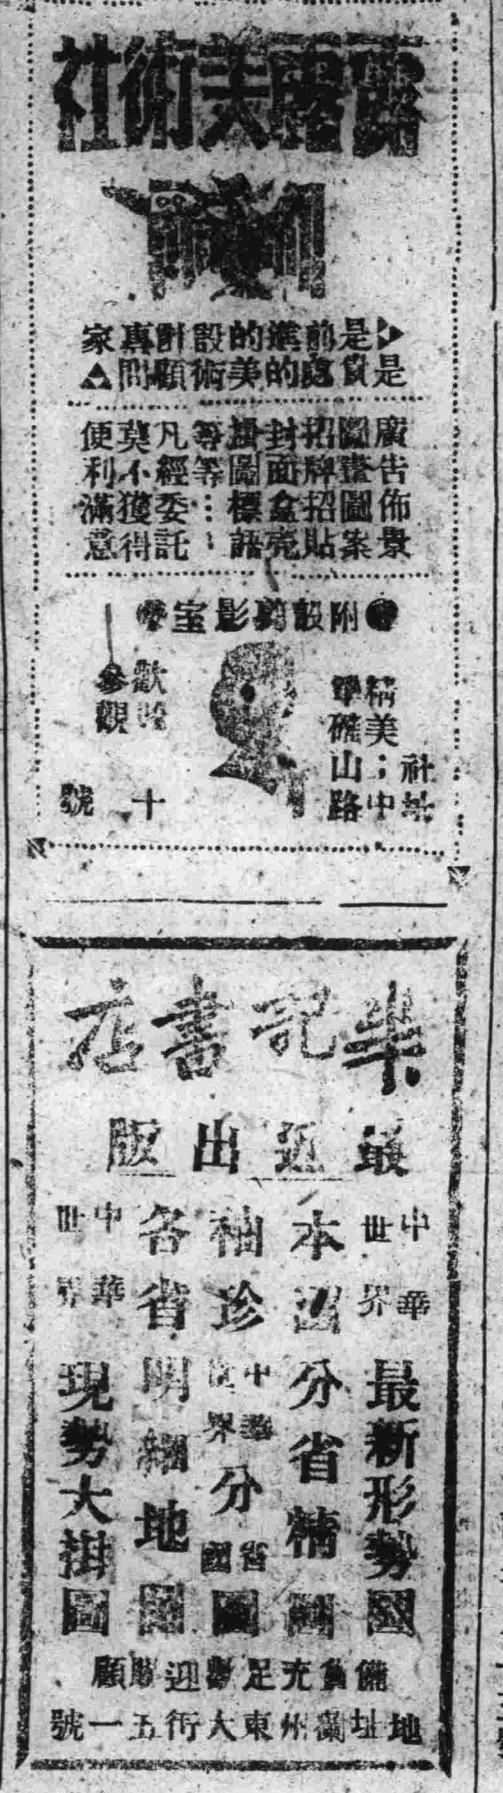 美術社
是前進的設計專家
是負責的美術顧問
廣告佈景
圖畫圖案
招牌招貼
封面盒壳
插圖標語
等等……
凡經委託
莫不獲得
便利滿意
附設剪影室
精美；準確
歡迎參觀
社址
中山路十號
記書店
最近出版
中華世界最新形勢圖
本國分省精圖
袖珍中華世界分省國圖
各省明細地圖
中華世界現勢大掛圖
備貨充足歡迎顧
地址蘭州東大街五一號